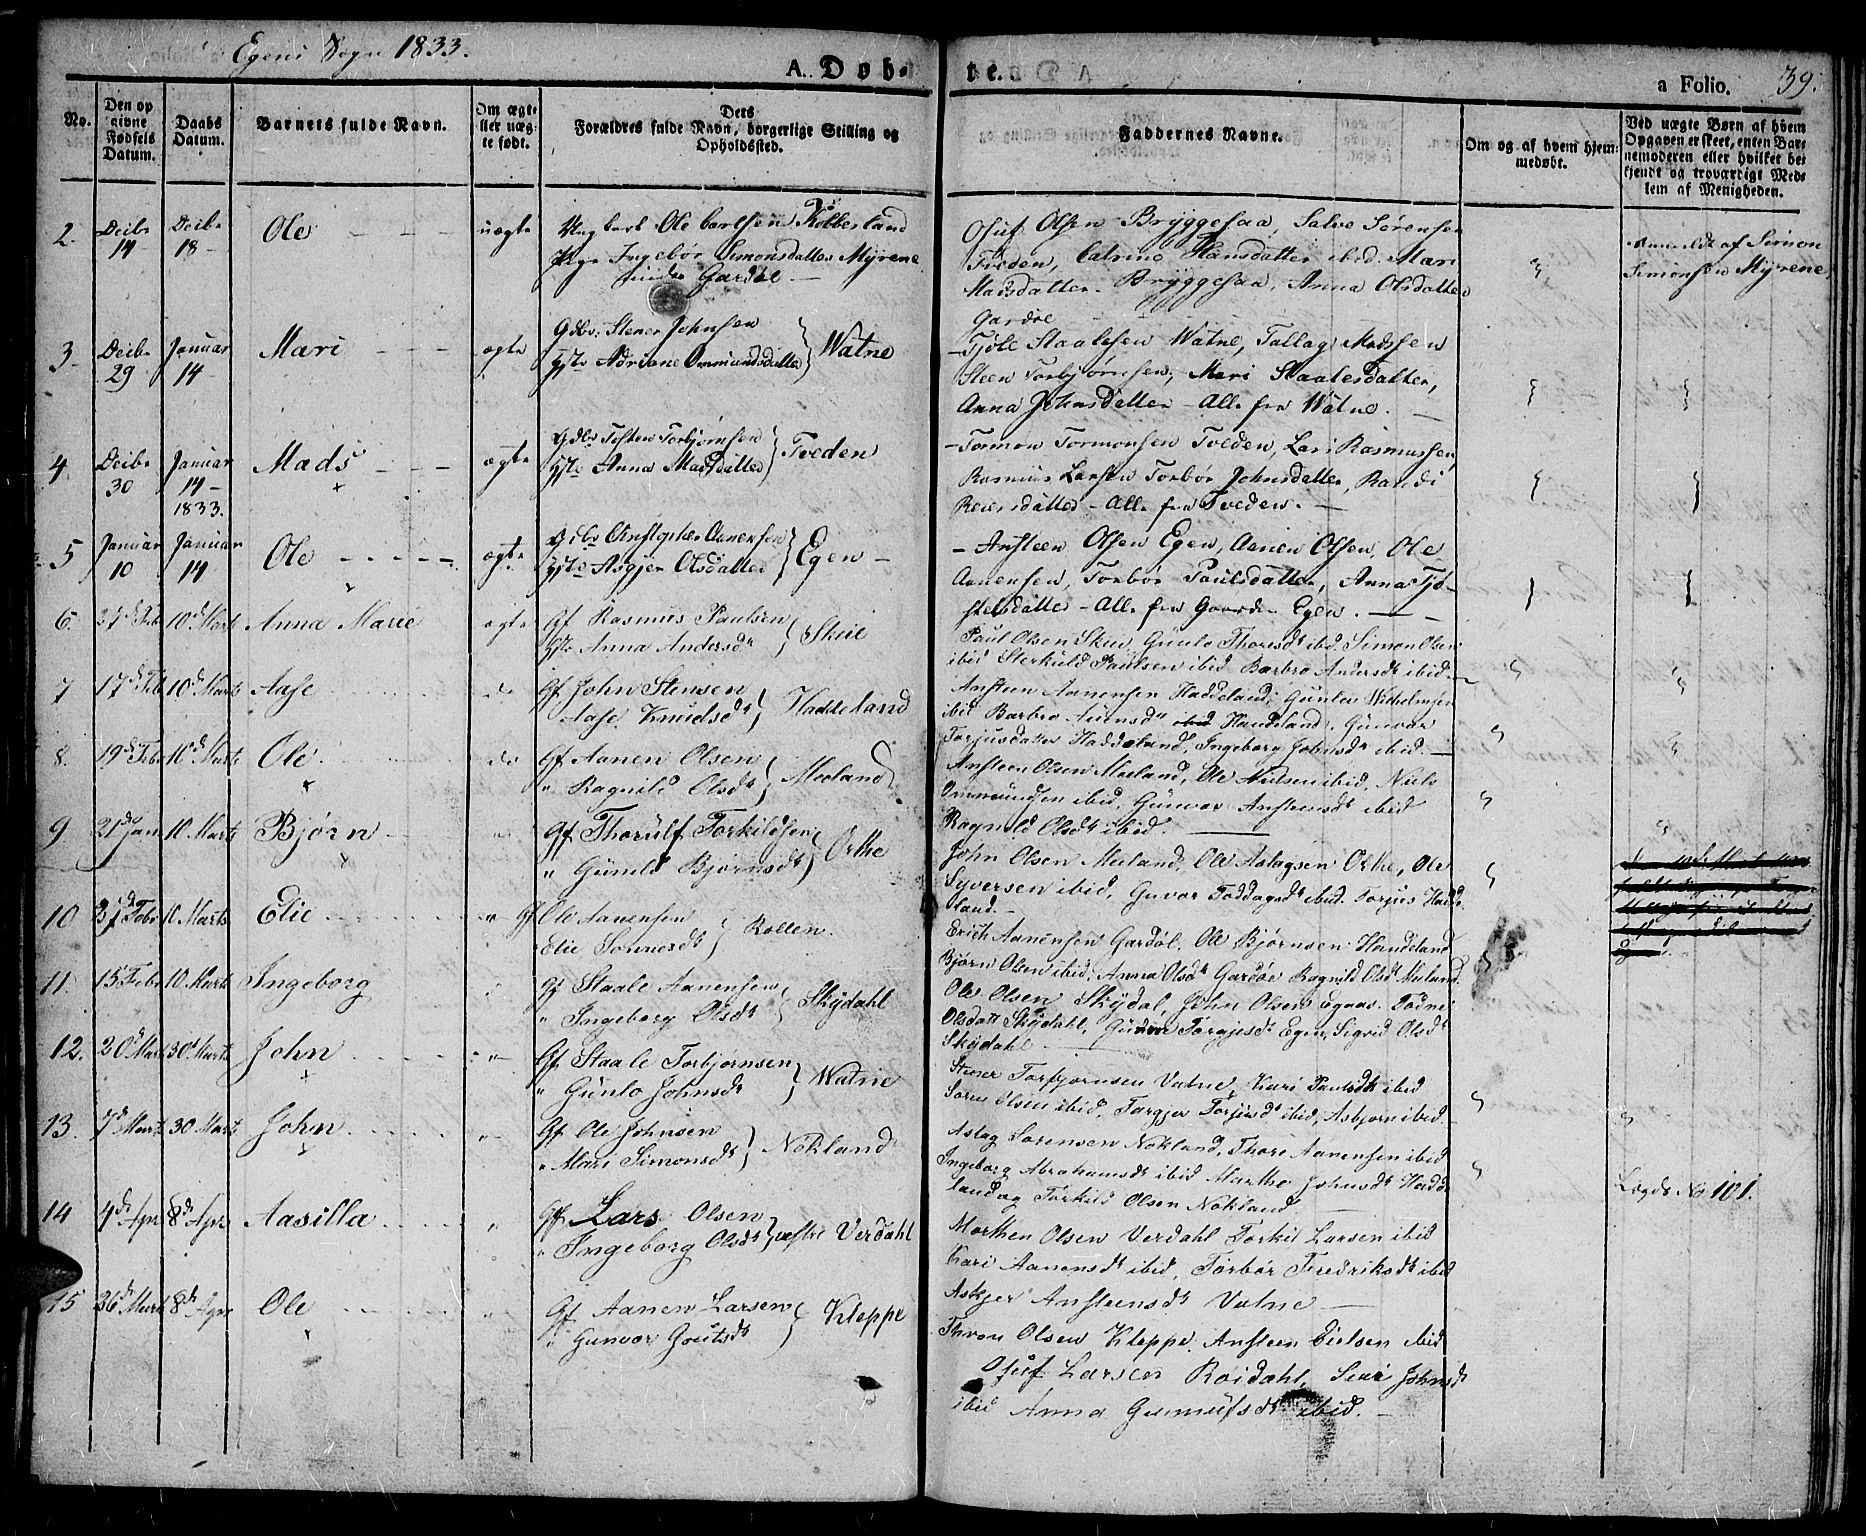 Egens Sogn 1833.
A. Døbte. a Folio. 39.
No.
Den opgivne Fødsels Datum.
Daabs Datum.
Barnets fulde Navn.
Om ægte eller uægte født.
Ders Forældres fulde Navn, borgerlige Stilling og Opholdssted.
Faddernes Navne.
Om og af hvem hjemmedøbt.
Ved uægte Børn af hvem Opgaven er skeet, enten Barnemoderen eller hvilket bekjendt og troværdigt Medlem af Menigheden.
2. Deibr 14 Deibr 18 Ole uægte
Ungkarl Ole Carlsen Kobberland
Pige Ingebor Simonsdatter Myrene
under Gardøl
Osuf Olsen Bryggesaa, Salve Sørensen
Tveden, Catrine Hansdatter ibid. Mari
Madsdatter Bryggesaa, Anna Olsdatter
Gardøe
Anmeldt af Simon
Simonsen Myrene
3. Deibr 29 Januar 14 Mari ægte
Gdbr: Stener Johnsen
Hst: Adriane Ommundsdatter } Watne
Tjøl Staalesen Watne, Tallag Madssen
Steen Torbjørnsen, Mari Staalesdatter,
Anna Johnsdatter - Alle fra Watne.
4. Deibr 30 Januar 14 1833. Mads ægte
Gdbr Tosten Torbjørnsen
Hst: Anna Madsdatter } Tveden
Tormon Tormonsen Tveden, Lars Rasmussen,
Rasmus Larsen Torbør Johnsdatter, Randi
Reiersdatter - Alle fra Tveden.
5 Januar 10 Januar 14 Ole ægte
Gdbr Christopher Aanensen
Hst: Asgjer Olsdatter } Egen
Ansteen Olsen Egen, Aanen Olsen, Ole
Aanensen, Torbør Paulsdatter, Anna Tjøstelsdatter - Alle fra Gaarden Egen.
6. 27d Feb 10d Marts Anna Marie ægte
Gf Rasmus Paulsen
Hst Anna Andersdr } Skeie
Paul Olsen Skeie, Gunlo Thoresdr ibid. Simon Olsen
ibid Sterkuld Paulsen ibid Barbro Andersdr ibid.
7 17d Feb 10d Marts Aase do
Gf John Stensen
Aase Knudsdr } Haddeland
Ansteen Aanensen Haddeland, Gunlev Wilhelmsen
ibid Barbro Aunsdr Haddeland, Gunvor
Torjusdatter Haddeland, Ingeborg Johnsdr ibid.
8. 19d Feb 10d Marts Ole do
Gf Aanen Olsen
" Ragnild Olsdr } Meeland
Ansteen Olsen Meeland, Ole Nielsen ibid, Niels
Ommundsen ibid, Gunvor Anstensdr ibid
Ragnild Olsdr ibid.
9. 21d Jan 10 Marts Bjørn "
Gf Thorulf Torkildsen
" Gunild Bjørnsdr } Orthe
John Olsen Meeland, Ole Aslagsen Orthe, Ole
Syversen ibid, Guvor Toddagsdr ibid. Torjus Haddeland.
10 27d Febr 10 Marts Elie "
Gf Ole Aanensen
Elie Sonnesdr } Rollen.
Erich Aanensen Gardøl. Ole Bjørnsen Haddeland
Bjørn Olsen ibid, Anna Olsdr Gardøe Ragnild Olsdr Meland.
11. 15 Febr 10 Marts Ingeborg
Gf Staale Aanensen
" Ingeborg Olsdr } Skydahl
Ole Olsen Skydal John Olsen Egaas. Dødni
Olsdatt Skydahl, Gunvor Torgjesdr Egen, Sigrid Olsdr
Skydahl
12. 20d Marts 30d Marts John "
Gf Staale Torbjørnsen
" Gunlo Johnsdr } Watne
Stener Torbjørnsen Vatne Kari Paulsdr ibid
Søren Olsen ibid, Torgjer Torjusdr ibid, Asbjørn ibid.
13. 7d Marts 30 Marts John "
Gf Ole Johnsen
" Mari Simonsdr } Nokland
Aslag Sørensen Nokland, Thore Aanensen ibid
Ingeborg Abrahamsdr ibid Marthe Johnsdr Haddeland og Torkild Olsen Nokland
14 4d Apr 8d Apr Aasilla "
Gf Lars Olsen
" Ingeborg Olsdr } vestre Verdahl
Morthen Olsen Verdahl Torkil Larsen ibid
Kari Aanensdr ibid, Torbør Fredriksdr ibid
Askjer Ansteensdr Vatne
Lægds No 101.
15 26d Marts 8d Apr Ole "
Gf Aanen Larsen
" Gunvor Goutsdr } Kleppe
Thron Olsen Kleppe, Ansteen Eielsen ibid
Osuf Larsen Røidahl, Siri Johnsdr
ibid Anna Gunnulfsdr ibid.